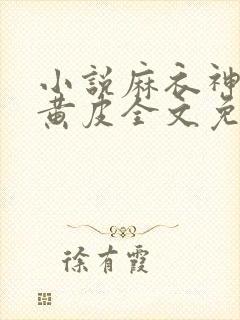 小说麻衣神
黄皮全文免
徐有霞